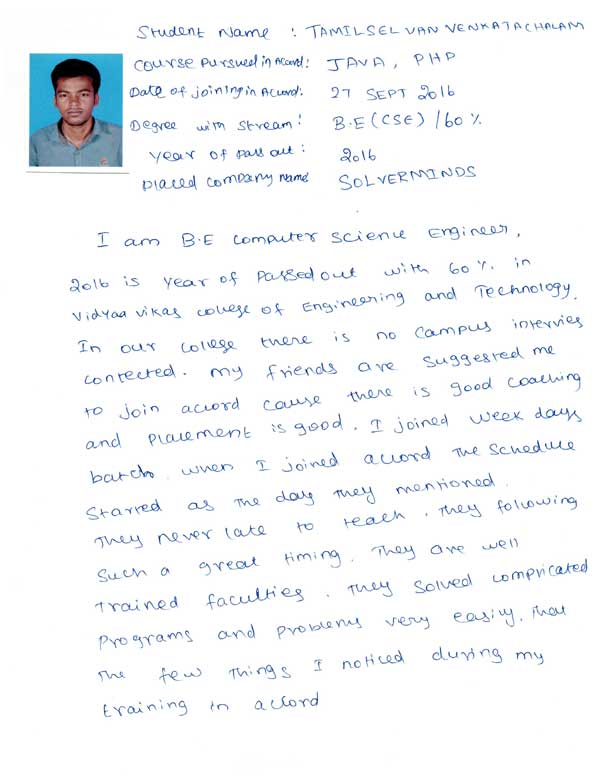 Student Name : TAMILSELVAN VENKATACHALAM
Course Pursued in Accord : JAVA, PHP
Date of joining in Accord : 27 SEPT 2016
Degree with Stream : B.E (CSE) / 60 %
Year of pass out : 2016
placed company name SOLVERMINDS
I am B.E computer science Engineer,
2016 is year of passedout with 60 % in
Vidyaa vikas college of Engineering and Technology.
In our college there is no campus intervies
contected. my friends are suggested me
to join accord cause there is good coaching
and placement is good. I joined week days
batch. when I joined accord the schedule
started as the day they mentioned.
They never late to teach. They following
such a great timing. They are well
trained faculties. They solved compricated
programs and problems very easily. that
the few things I noticed during my
training in accord